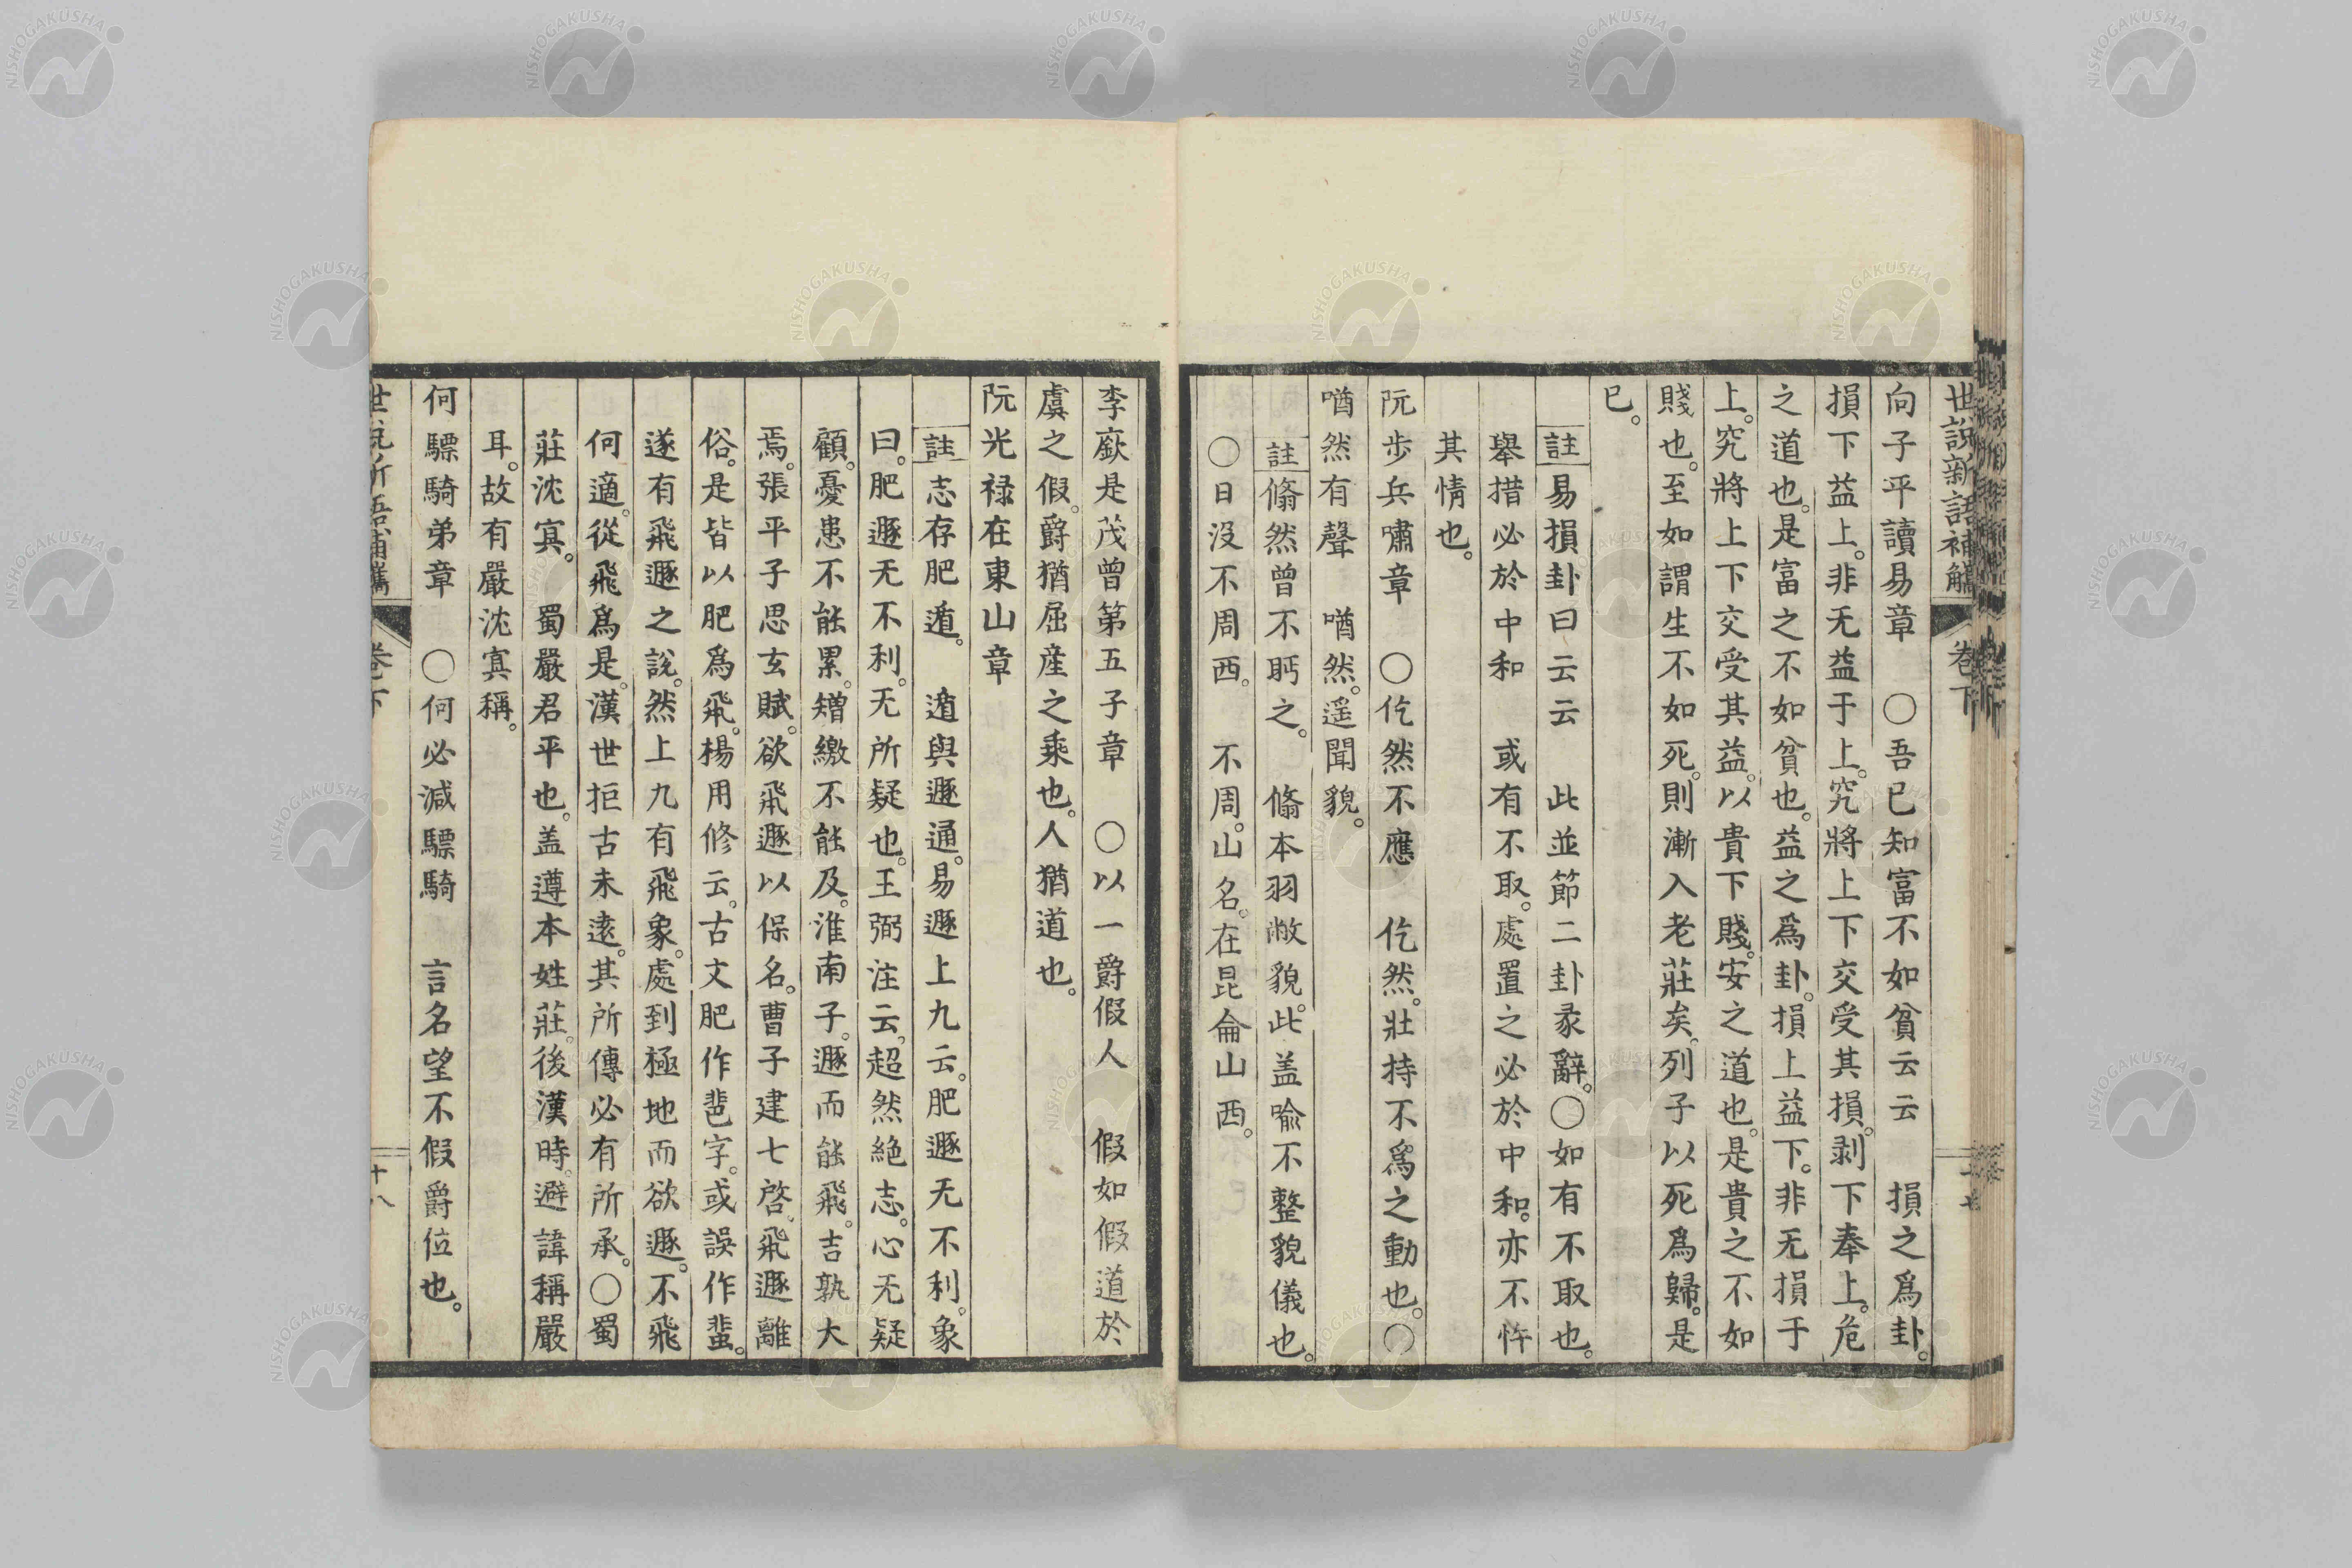 世說新語補觿 卷下
向子平讀易章　○吾已知富不如貧云云　損之爲卦。
損下益上。非无益于上。究將上下交受其損。剥下奉上。危
之道也。是富之不如貧也。益之爲卦。損上益下。非无損于
上。究將上下交受其益。以貴下賤。安之道也。是貴之不如
賤也。至如謂生不如死。則漸入老莊矣。列子以死爲歸。是
已。
註易損卦曰云云　此並節二卦彖辭。○如有不取也。
舉措必於中和　或有不取。處置之必於中和。亦不忤
其情也。
阮步兵嘯章　○仡然不應　仡然。壯持不爲之動也。○
㗜然有聲　㗜然。遥聞貌。
註翛然曾不眄之。　翛本羽敝貌。此盖喻不整貌儀也。
○日没不周西。　不周。山名。在昆侖山西。
李廞是茂曾第五子章　○以一爵假人　假如假道於
虞之假。爵猶屈産之乘也。人猶道也。
阮光禄在東山章
註志存肥遁。　遁與遯通。易遯上九云。肥遯无不利。象
曰。肥遯无不利。无所疑也。王弼注云。超然絶志。心无疑
顧。憂患不能累。矰繳不能及。淮南子。遯而能飛。吉孰大
焉。張平子思玄賦。欲飛遯以保名。曹子建七啓。飛遯離
俗。是皆以肥爲飛。楊用修云。古文肥作蜚字。或誤作蜚。
遂有飛遯之說。然上九有飛象。處到極地而欲遯。不飛
何適。從飛爲是。漢世拒古未遠。其所傳必有所承。○蜀
莊沈寘。　蜀嚴君平也。盖遵本姓莊。後漢時。避諱稱嚴
耳。故有嚴沈寘稱。
何驃騎弟章　○何必減驃騎　言名望不假爵位也。
世說新語補觿 卷下 十八